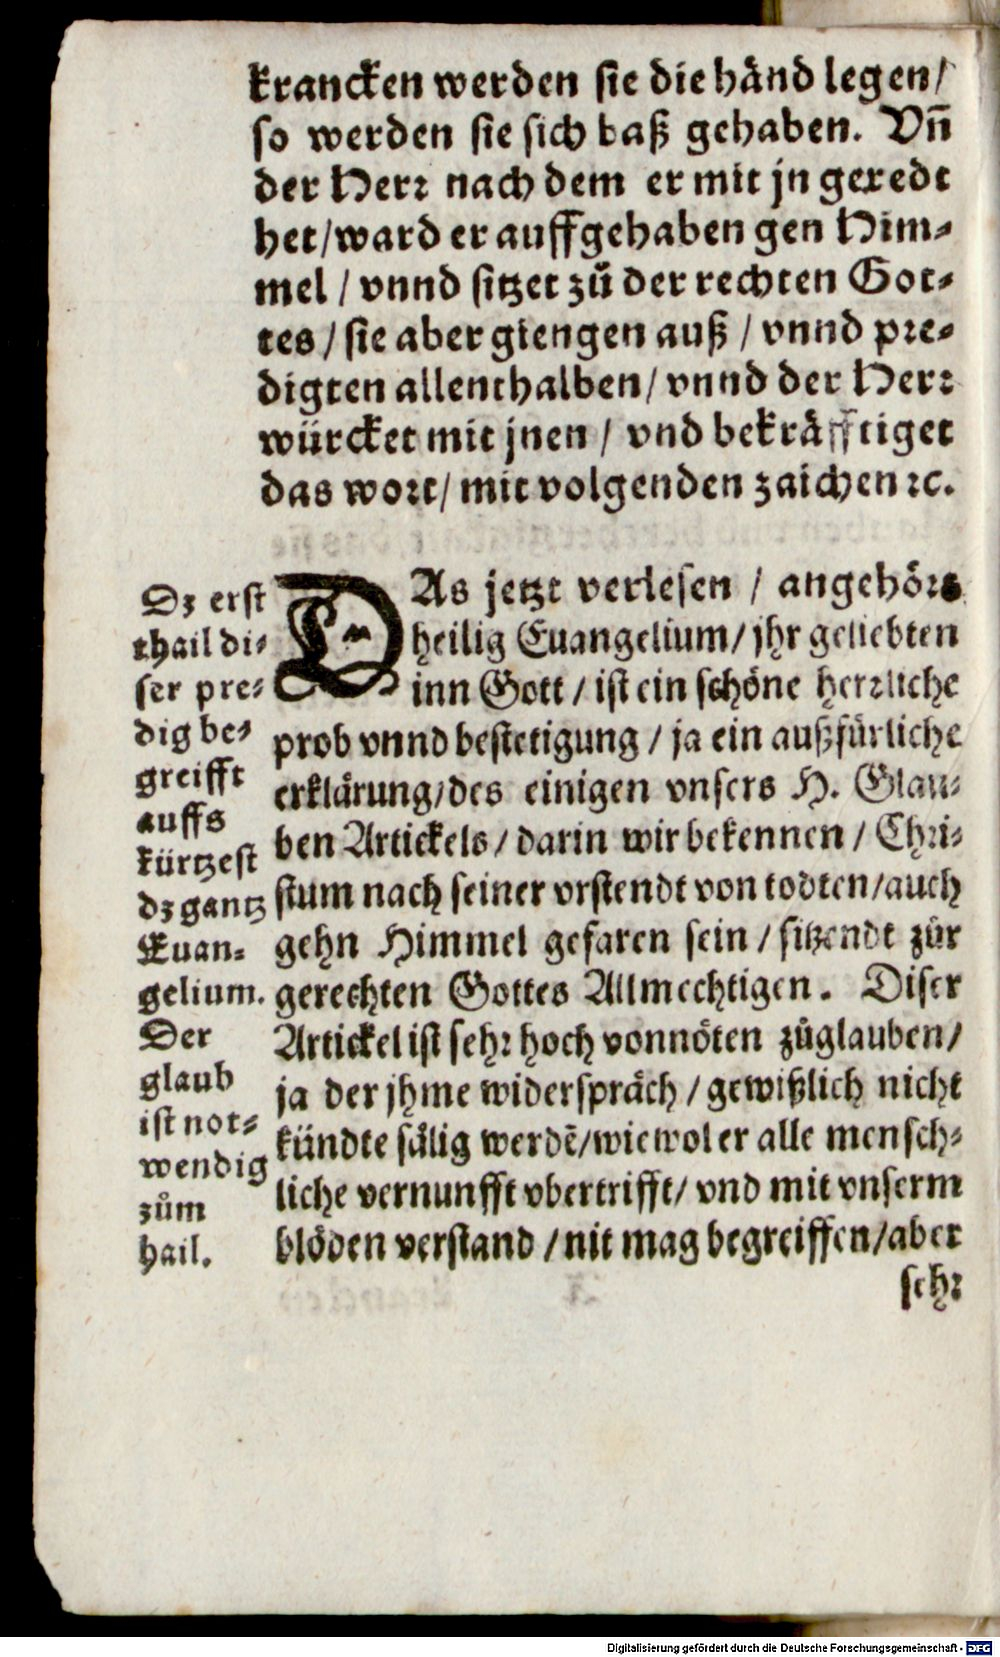 krancken werden sie die händ legen/
so werden sie sich baß gehaben. Vñ
der Herr nach dem er mit jn geredt
het/ward er auffgehaben gen Him-
mel / vnnd sitzet zů der rechten Got-
tes / sie aber giengen auß / vnnd pre-
digten allenthalben/ vnnd der Herr
würcket mit jnen / vnd bekräfftiget
das wort/ mit volgenden zaichen ꝛc.
DAs jetzt verlesen / angehörs
heilig Euangelium/ jhr geliebten
inn Gott / ist ein schöne herrliche
prob vnnd bestetigung / ja ein außfürliche
erklärung/des einigen vnsers H. Glau-
ben Artickels / darin wir bekennen / Chri-
stum nach seiner vrstendt von todten/auch
gehn Himmel gefaren sein / sitzendt zůr
gerechten Gottes Allmechtigen. Diser
Artickel ist sehr hoch vonnöten zůglauben/
ja der jhme widerspräch / gewißlich nicht
kündte sälig werdẽ/wiewol er alle mensch-
liche vernunfft vbertrifft/ vnd mit vnserm
blöden verstand / nit mag begreiffen/aber
sehr
Dz erst
thail di-
ser pre-
dig be-
greifft
auffs
kürtzest
dz gantz
Euan-
gelium.
Der
glaub
ist not-
wendig
zům
hail.
Digitalisierung gefördert durch die Deutsche Forschungsgemeinschaft - DFG